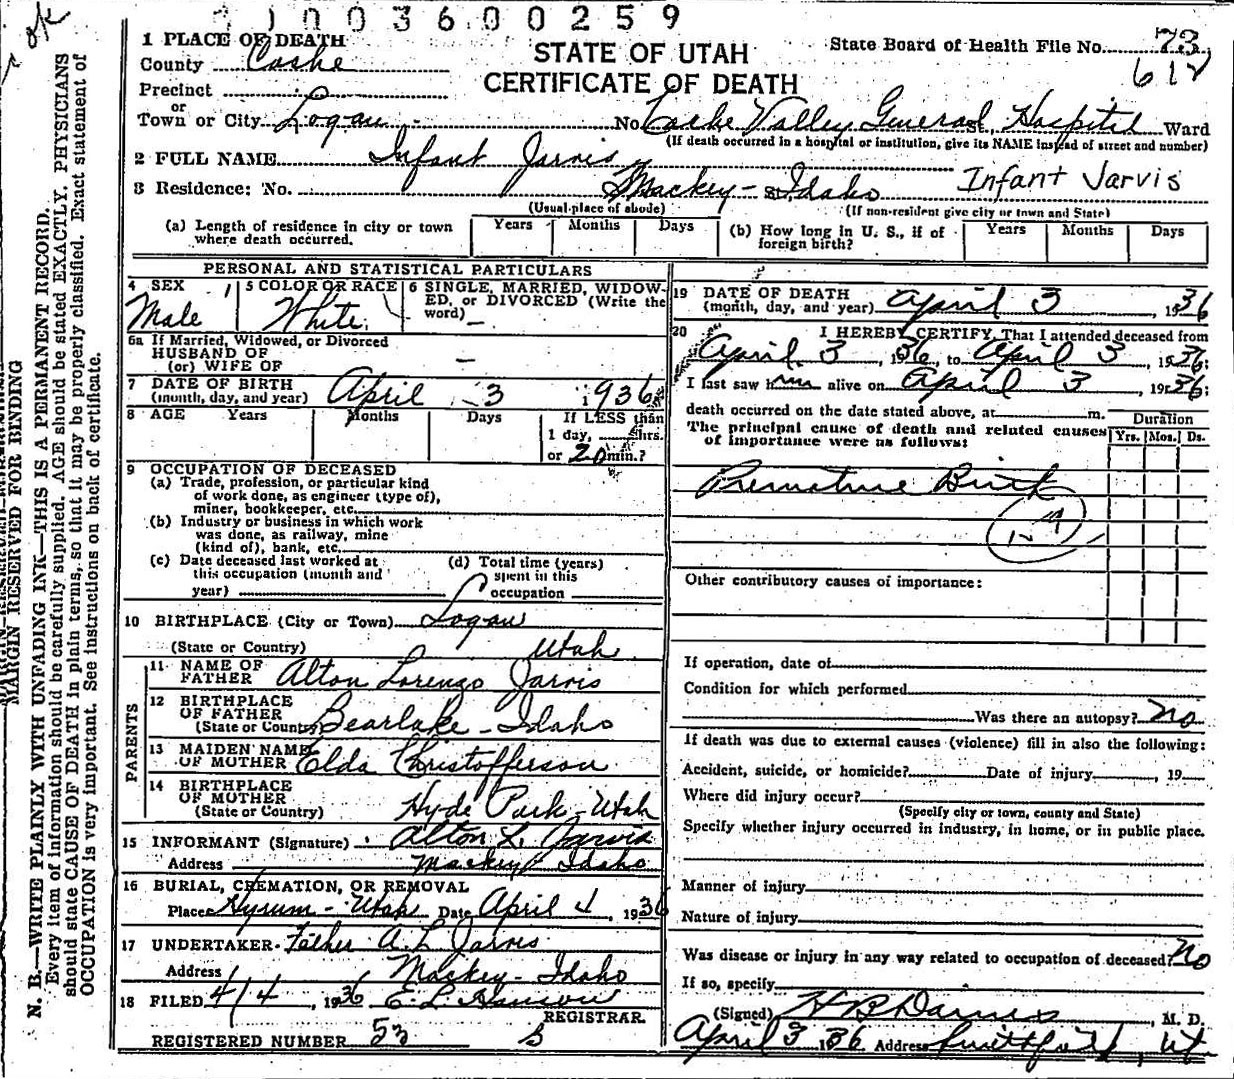 1003600259
1 PLACE OF DEATH
County Cache
STATE OF UTAH
CERTIFICATE OF DEATH
State Board of Health File No. 73
612
Precinct
or
Town or City Logan - No. Cache Valley General St. Hospital Ward
(If death occurred in a hospital or institution, give its NAME instead of street and number)
2 FULL NAME Infant Jarvis
3 Residence: No. Mackey - St. Idaho Infant Jarvis
(Usual place of abode) (If non-resident give city or town and State)
(a) Length of residence in city or town where death occurred. Years Months Days
(b) How long in U. S., if of foreign birth? Years Months Days
PERSONAL AND STATISTICAL PARTICULARS
4 SEX Male
5 COLOR OR RACE White
6 SINGLE, MARRIED, WIDOWED, or DIVORCED (Write the word) -
6a If Married, Widowed, or Divorced
HUSBAND OF
(or) WIFE OF -
7 DATE OF BIRTH
(month, day, and year) April 3 1936
8 AGE Years Months Days If LESS than
1 day, hrs.
or 20 min.?
9 OCCUPATION OF DECEASED
(a) Trade, profession, or particular kind
of work done, as engineer (type of),
miner, bookkeeper, etc.
(b) Industry or business in which work
was done, as railway, mine
(kind of), bank, etc.
(c) Date deceased last worked at
this occupation (month and
year)
(d) Total time (years)
spent in this
occupation
10 BIRTHPLACE (City or Town) Logan
(State or Country) Utah
PARENTS
11 NAME OF
FATHER Alton Lorenzo Jarvis
12 BIRTHPLACE
OF FATHER
(State or Country) Bearlake - Idaho
13 MAIDEN NAME
OF MOTHER Elda Christofferson
14 BIRTHPLACE
OF MOTHER
(State or Country) Hyde Park - Utah
15 INFORMANT (Signature) Alton L. Jarvis
Address Mackey Idaho
16 BURIAL, CREMATION, OR REMOVAL
Place Hyrum - Utah Date April 4, 1936
17 UNDERTAKER Father A. L. Jarvis
Address Mackey - Idaho
18 FILED 4/4, 1936 E. L. Hanson
REGISTRAR
REGISTERED NUMBER 53
19 DATE OF DEATH
(month, day, and year) April 3, 1936
20 I HEREBY CERTIFY, That I attended deceased from
April 3, 1936, to April 3 1936;
I last saw him alive on April 3, 1936;
death occurred on the date stated above, at m.
The principal cause of death and related causes
of importance were as follows:
Duration
Yrs. Mos. Ds.
Premature Birth
Other contributory causes of importance:
If operation, date of
Condition for which performed
Was there an autopsy? no
If death was due to external causes (violence) fill in also the following:
Accident, suicide, or homicide? Date of injury , 19
Where did injury occur?
(Specify city or town, county and State)
Specify whether injury occurred in industry, in home, or in public place.
Manner of injury
Nature of injury
Was disease or injury in any way related to occupation of deceased? no
If so, specify
(Signed) , M. D.
April 3 1936 Address
MARGIN RESERVED FOR BINDING
N. B.—WRITE PLAINLY WITH UNFADING INK—THIS IS A PERMANENT RECORD.
Every item of information should be carefully supplied. AGE should be stated EXACTLY. PHYSICIANS
should state CAUSE OF DEATH in plain terms, so that it may be properly classified. Exact statement of
OCCUPATION is very important. See instructions on back of certificate.